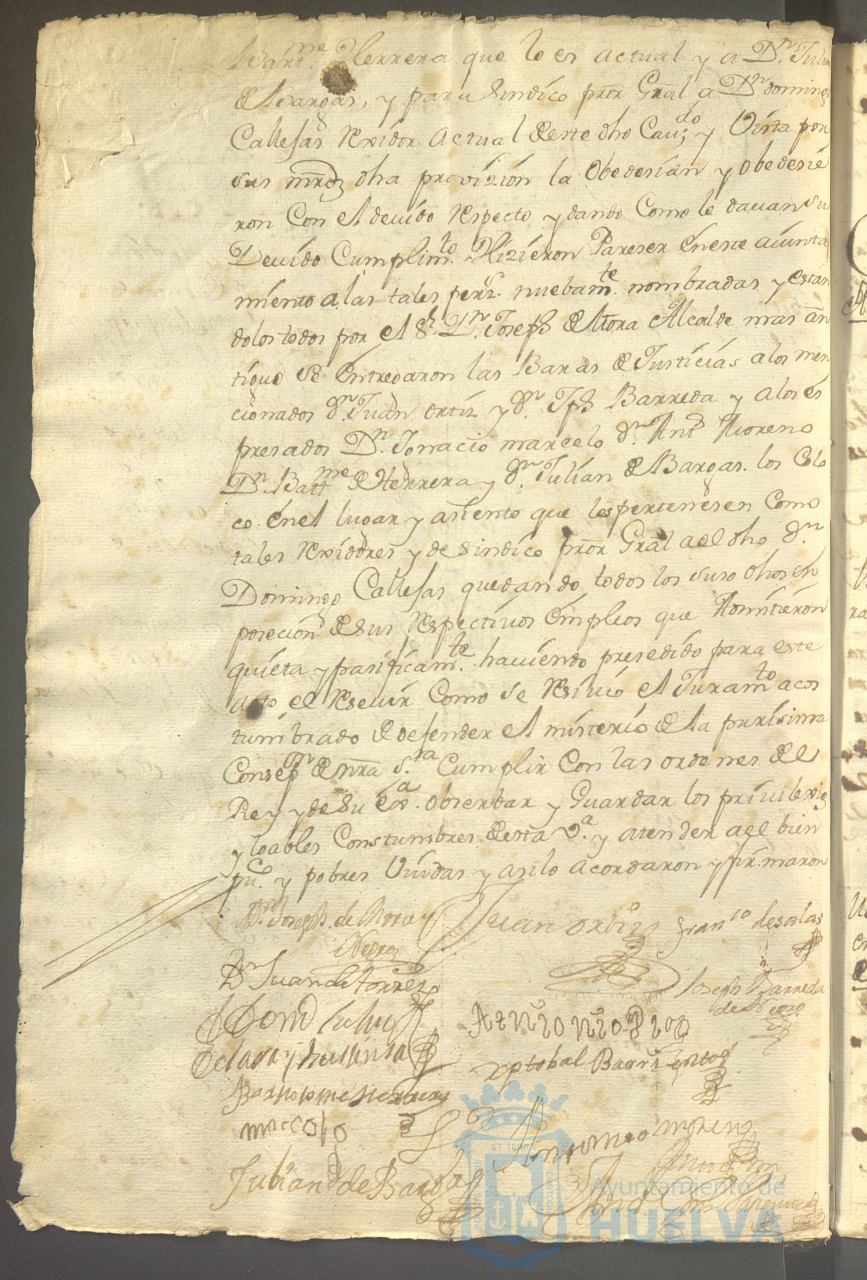 Bart.me Herrera que lo es actual y a Dn Julian
de Bargas, y para Sindico pror Gral a Dn doming.
Callejas Rexidor actual de este dho Cav.do y Vista por
sus mrds dha provizion la obedesian y obedesie
ron Con el devido respecto y dando Como le davan su
Devido Cumplim.to Hizieron Pareser en este aiunta
miento a las tales pers.s nuebam.te nombradas y estan
dolos todos por el Sr Dn Joseph de Mora Alcalde mas an
tiguo se entregaron las Baras de Justicias a los men
cionados dn Juan ortiz y dn Jph Barreda y a los es
presados Dn Ignacio marcelo dn Ant.o Moreno
Dn Bartt.me de Herrera y dn Julian de Bargas. los Colo
co en el lugar y asiento que les pertenesen Como
tales Rexidores y de sindico pror Gral a el dho dn
Domingo Callejas quedando todos los suso dhos en
posecion de sus respectivos empleos que Admitieron
quieta y pasificam.te haviendo presedido para este
acto el resevir Como se resivio el Juram.to acos
tumbrado de defender el misterio de la purisima
Consep.on de nra S.ra Cumplir Con las ordenes de el
Rey y de su Ex.a obserbar y Guardar los privilexios
y loables Constumbres de esta V.a y atender a el bien
pu.co y pobres Viudas y asi lo acordaron y firmaron
Dn Joseph de Mora y Juan ortiz Fran.co de salas
Negro
Dn Juan de torres Joseph Barreda
Antonio
xptobal Barrientos
Bartholome Herrera y
Antonio moreno
Julian de Bargas
Ayuntamiento de
HUELVA